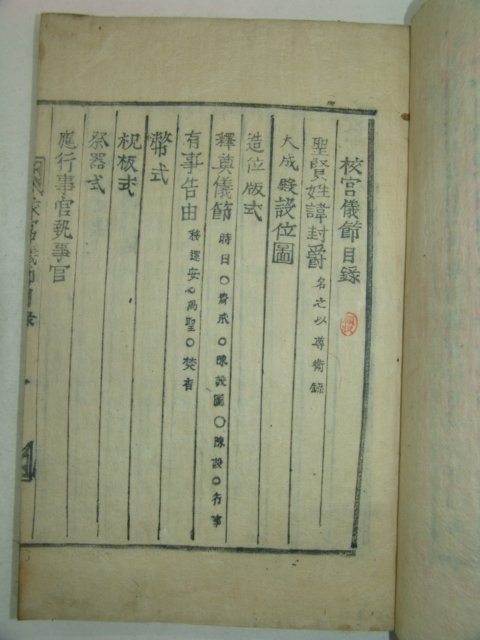 校宮儀節目錄
聖賢姓諱封爵 名之以尊衛錄
大成殿設位圖
造位版式
釋奠儀節 時日○齋戒○陳設圖○陳設○行事
有事告由 移還安心為聖○焚香
幣式
祝板式
祭器式
應行事官執事官
校宮儀節目錄